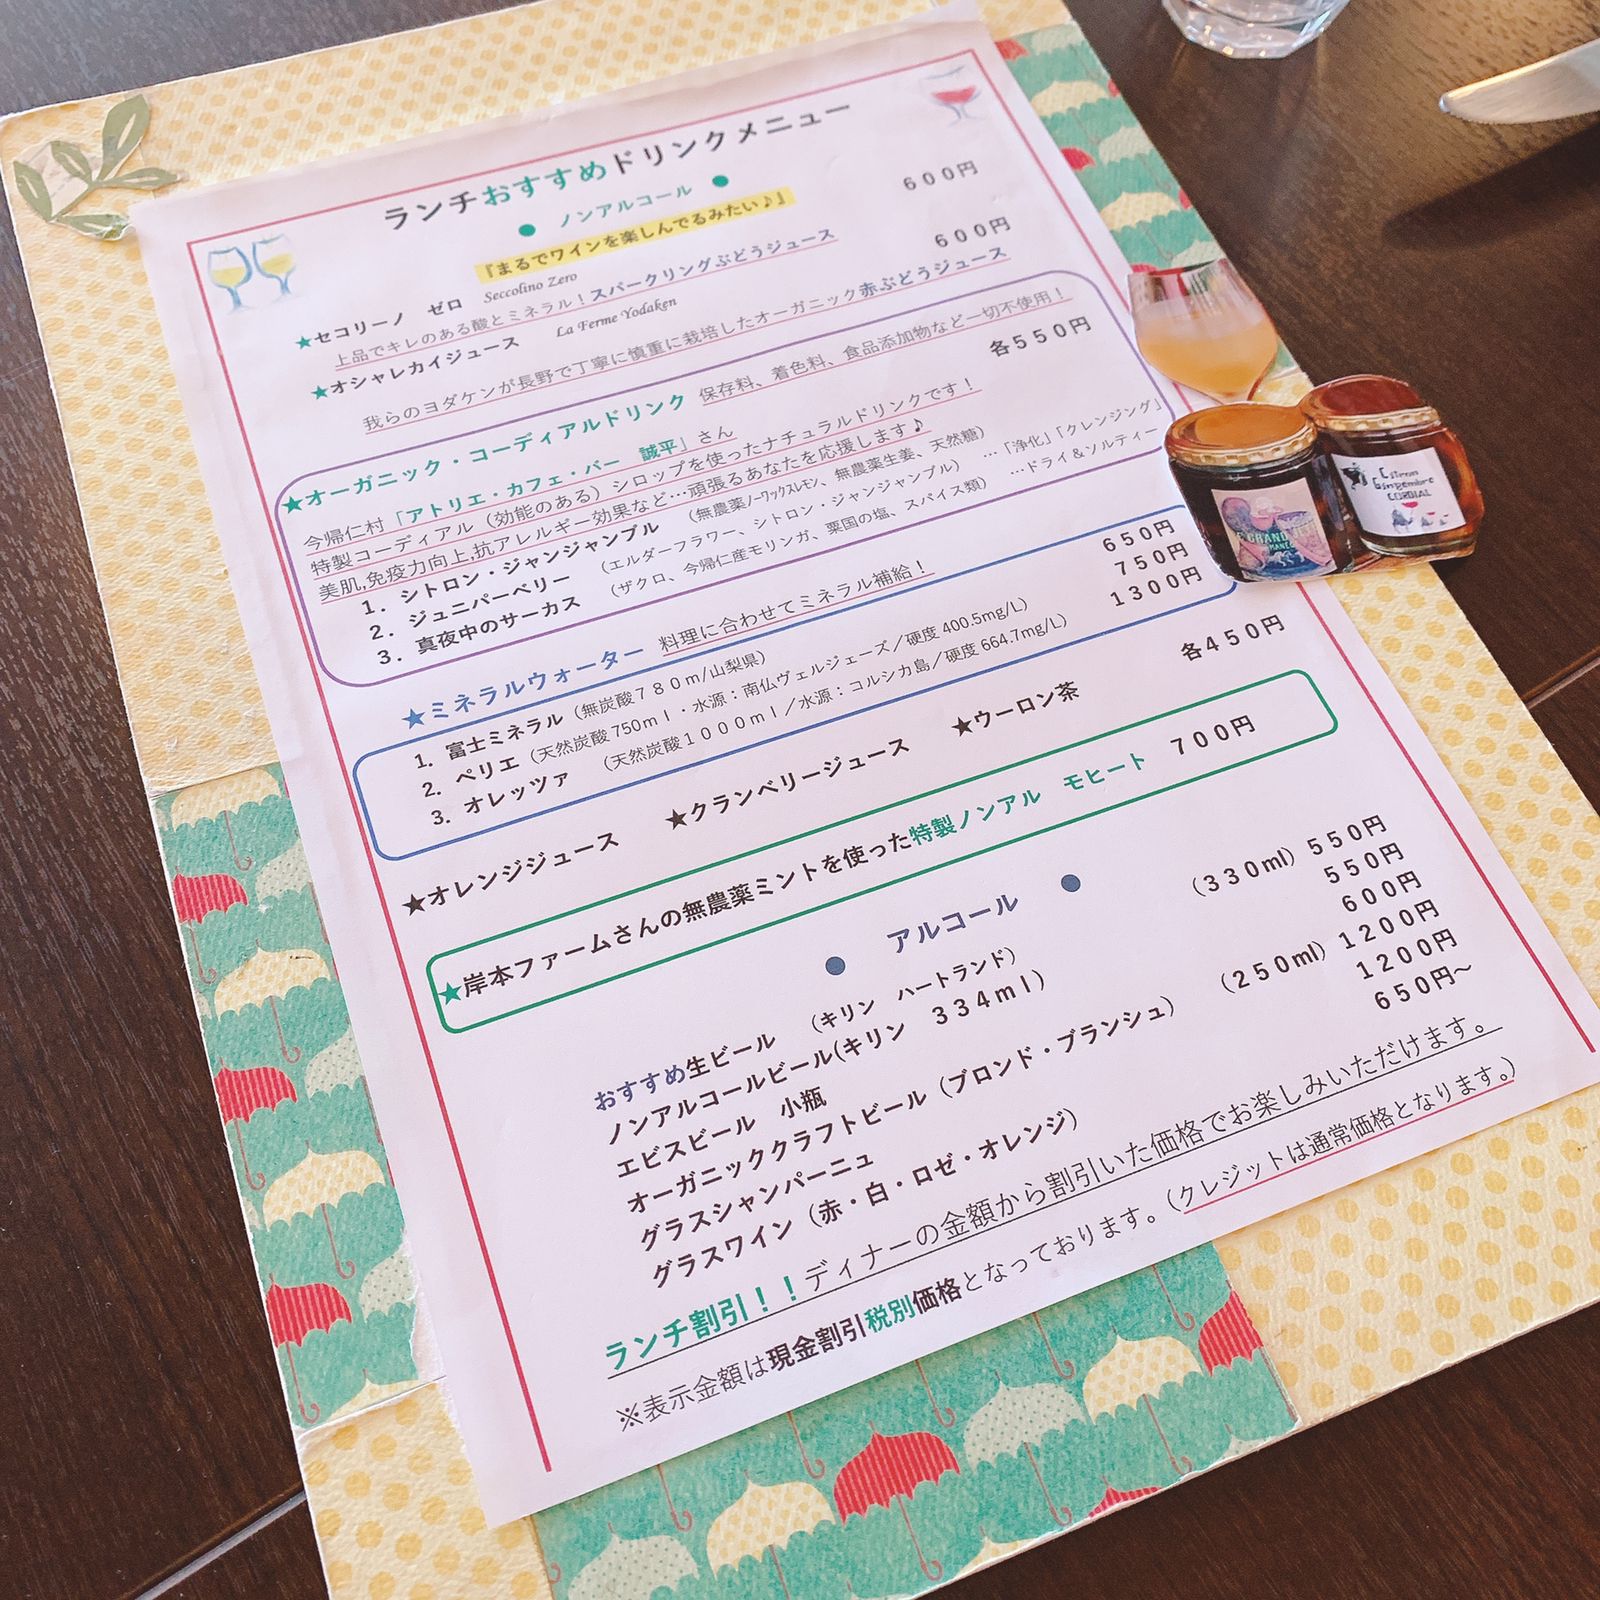 ランチおすすめドリンクメニュー
● ノンアルコール ●
『まるでワインを楽しんでるみたい♪』
★セコリーノ ゼロ Seccolino Zero 600円
上品でキレのある酸とミネラル！スパークリングぶどうジュース
★オシャレカイジュース La Ferme Yodaken 600円
我らのヨダケンが長野で丁寧に慎重に栽培したオーガニック赤ぶどうジュース
★オーガニック・コーディアルドリンク 保存料、着色料、食品添加物など一切不使用！
今帰仁村「アトリエ・カフェ・バー 誠平」さん 各550円
特製コーディアル（効能のある）シロップを使ったナチュラルドリンクです！
美肌,免疫力向上,抗アレルギー効果など…頑張るあなたを応援します♪
1. シトロン・ジャンジャンブル （無農薬ノーワックスレモン、無農薬生姜、天然糖）
2. ジュニパーベリー （エルダーフラワー、シトロン・ジャンジャンブル） …「浄化」「クレンジング」
3. 真夜中のサーカス （ザクロ、今帰仁産モリンガ、粟国の塩、スパイス類） …ドライ＆ソルティー
★ミネラルウォーター 料理に合わせてミネラル補給！
1. 富士ミネラル（無炭酸780m/山梨県） 650円
2. ペリエ（天然炭酸750ml・水源：南仏ヴェルジェーズ／硬度400.5mg/L） 750円
3. オレッツァ （天然炭酸1000ml／水源：コルシカ島／硬度664.7mg/L） 1300円
★オレンジジュース ★クランベリージュース ★ウーロン茶 各450円
★岸本ファームさんの無農薬ミントを使った特製ノンアル モヒート 700円
● アルコール ●
おすすめ生ビール （キリン ハートランド） （330ml）550円
ノンアルコールビール(キリン 334ml） 550円
エビスビール 小瓶 600円
オーガニッククラフトビール（ブロンド・ブランシュ） （250ml）1200円
グラスシャンパーニュ 1200円
グラスワイン（赤・白・ロゼ・オレンジ） 650円～
ランチ割引！！ディナーの金額から割引いた価格でお楽しみいただけます。
※表示金額は現金割引税別価格となっております。（クレジットは通常価格となります。）
Citron
Gingembre
CORDIAL